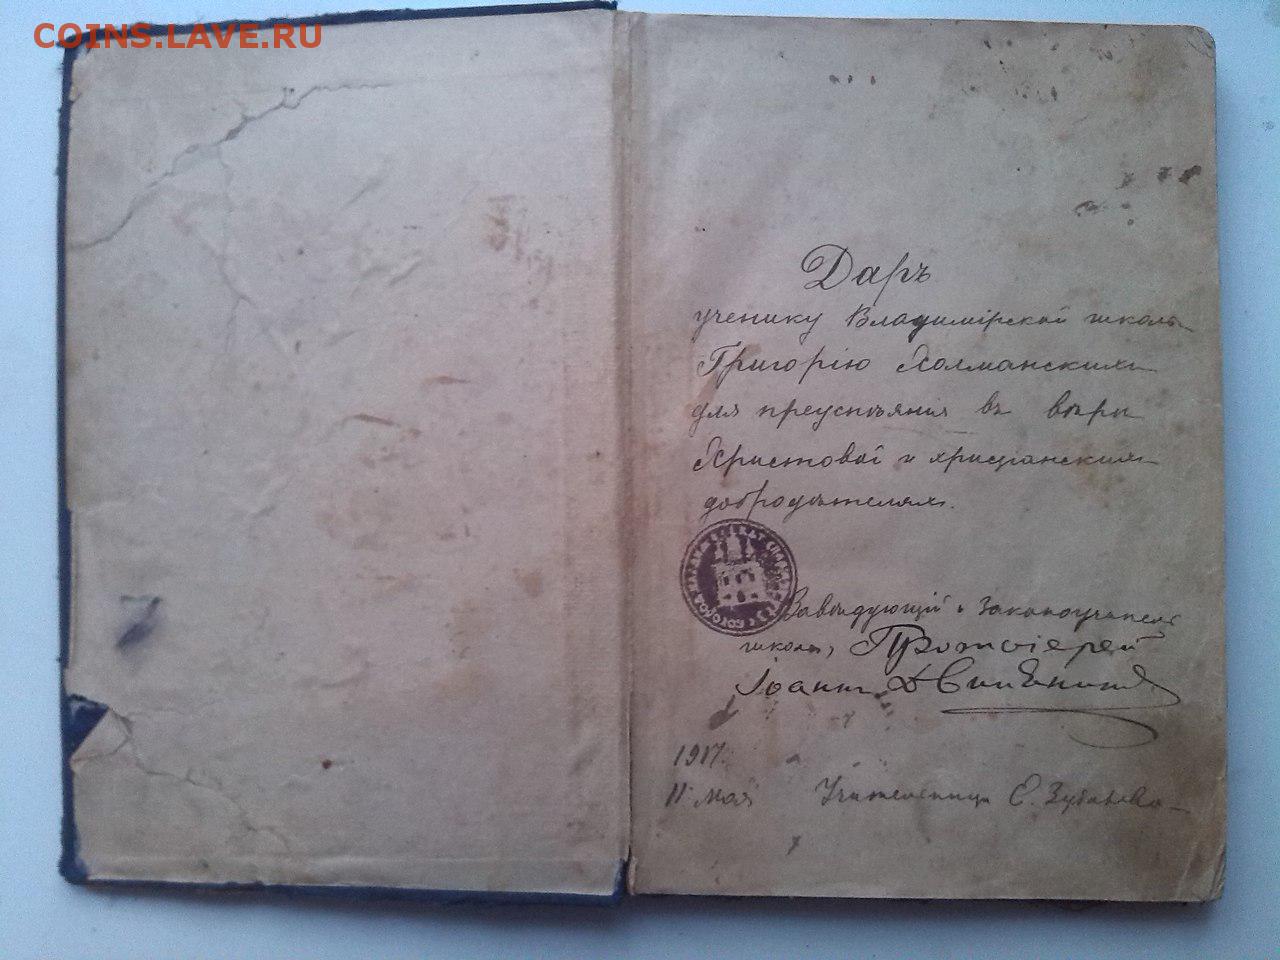 COINS.LAVE.RU
Даръ
ученику Владимірской школы
Григорію Холманскихъ
для преуспѣянія въ вѣрѣ
Христовой и христіанскихъ
добродѣтеляхъ.
Завѣдующій и Законоучитель
школы, Протоіерей
Іоаннъ
1917.
11 мая Учительница Е. Зубарева